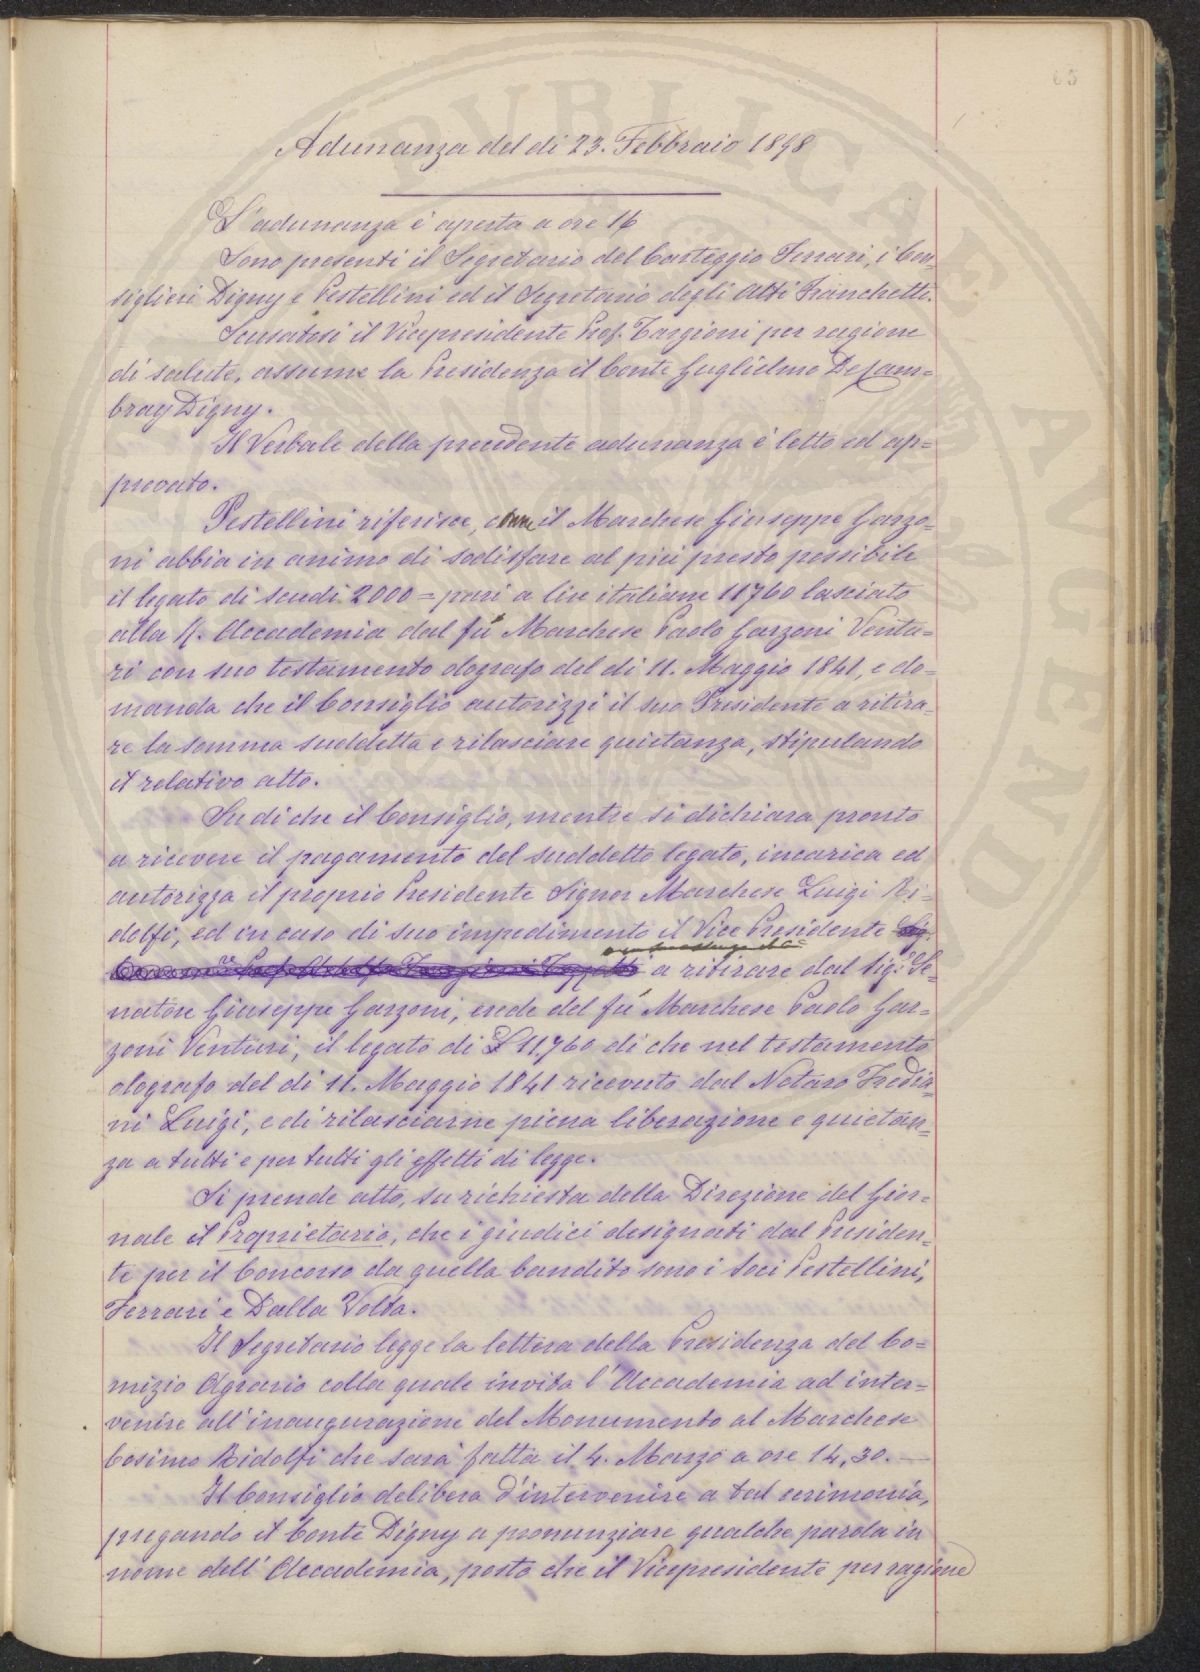 65
Adunanza del dì 23. Febbraio 1898
L'adunanza è aperta a ore 16
Sono presenti il Segretario del Carteggio Ferrari, i Con=
siglieri Digny e Pestellini ed il Segretario degli Atti Franchetti.
Scusatosi il Vicepresidente Prof. Targioni per ragione
di salute, assume la Presidenza il Conte Guglielmo De Cam=
bray Digny.
Il Verbale della precedente adunanza è letto ed ap=
provato.
Pestellini riferisce, come il Marchese Giuseppe Garzo=
ni abbia in animo di sodisfare al più presto possibile
il legato di scudi 2000 = pari a lire italiane 11760 lasciato
alla R. Accademia dal fù Marchese Paolo Garzoni Ventu=
ri con suo testamento olografo del dì 11. Maggio 1841, e do=
manda che il Consiglio autorizzi il suo Presidente a ritira=
re la somma suddetta e rilasciare quietanza, stipulando
il relativo atto.
Su di che il Consiglio, mentre si dichiara pronto
a ricevere il pagamento del suddetto legato, incarica ed
autorizza il proprio Presidente Signor Marchese Luigi Ri=
dolfi, ed in caso di suo impedimento il Vice Presidente
Prof. Adolfo Targioni Tozzetti a ritirare dal Sig. Se=
natore Giuseppe Garzoni, erede del fù Marchese Paolo Gar=
zoni Venturi, il legato di £ 11.760 di che nel testamento
olografo del dì 11. Maggio 1841 ricevuto dal Notaro
Luigi, e di rilasciarne piena liberazione e quietan=
za a tutti e per tutti gli effetti di legge.
Si prende atto, su richiesta della Direzione del Gior=
nale il Proprietario, che i giudici designati dal Presiden=
te per il Concorso da quella bandito sono i Soci Pestellini,
Ferrari e Dalla Volta.
Il Segretario legge la lettera della Presidenza del Co=
mizio Agrario colla quale invita l'Accademia ad inter=
venire all'inaugurazione del Monumento al Marchese
Cosimo Ridolfi che sarà fatta il 4. Marzo a ore 14,30. —
Il Consiglio delibera d'intervenire a tal cerimonia,
pregando il Conte Digny a pronunziare qualche parola in
nome dell'Accademia, posto che il Vicepresidente per ragione
PVBLICAE AVGENDAE